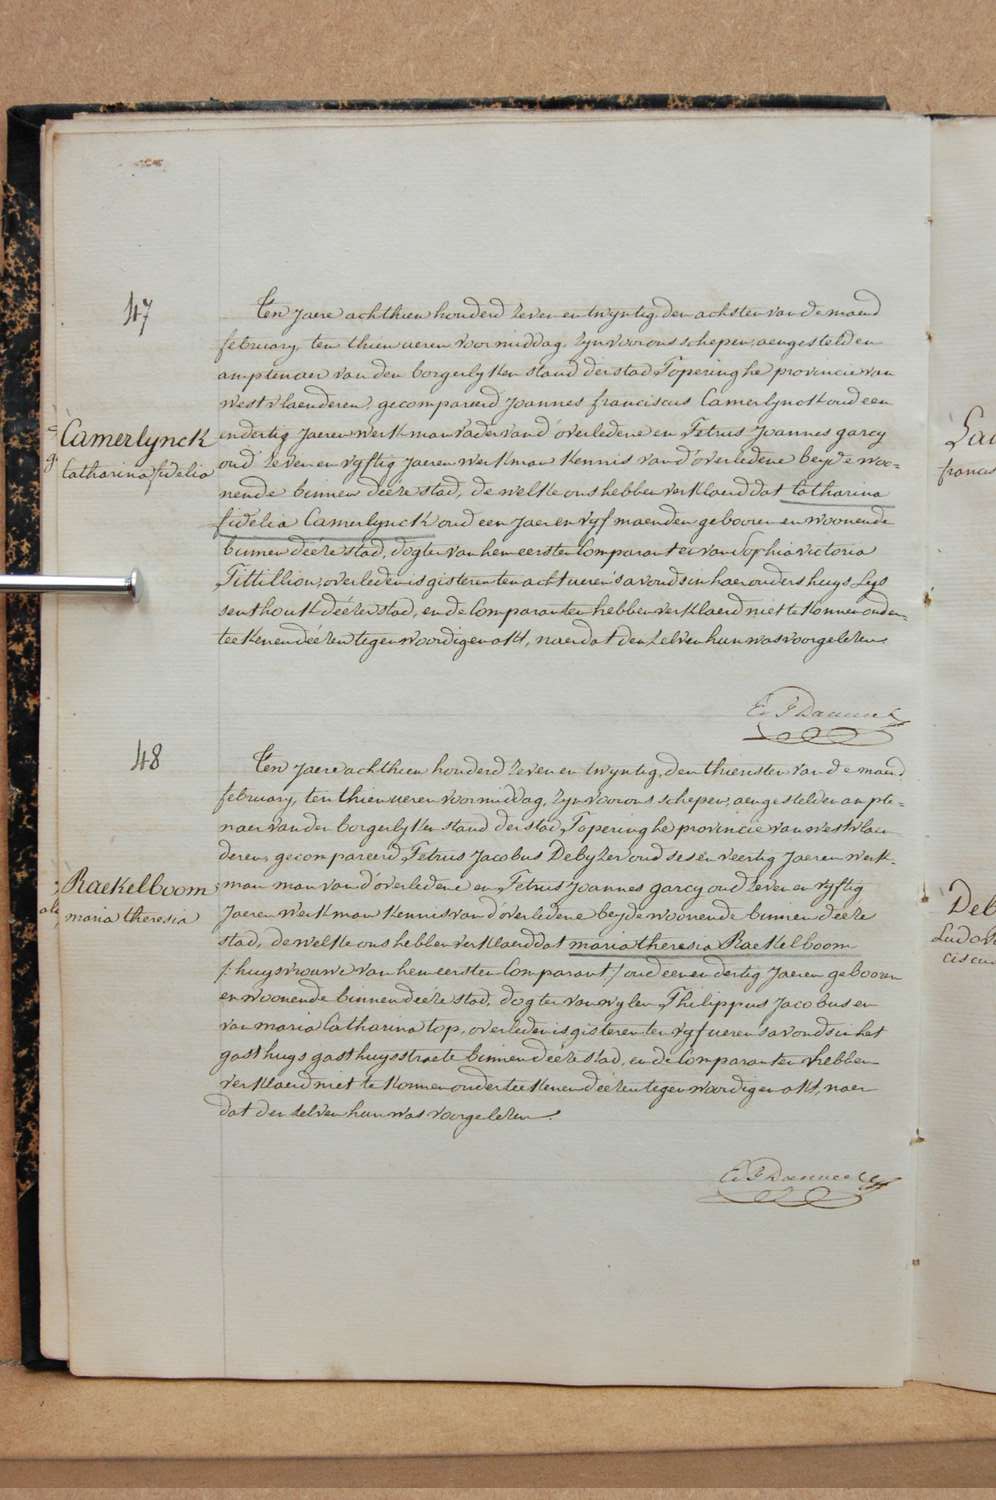 47
Camerlynck
Catharina fidelia
Ten Jaere achthien honderd zeven en twyntig, den achsten van de maend
february, ten thien ueren voormiddag, zyn voor ons schepen, aengestelden
amptenaer van den borgerlyken stand der stad Poperinghe provincie van
westvlaenderen, gecompareerd Joannes franciscus Camerlynck oud een
endertig Jaeren werkman vader van d'overledene en Petrus Joannes garcy
oud zeven en vyftig Jaeren werkman kennis van d'overledene beyde woo-
nende binnen déeze stad, de welke ons hebben verklaerd dat Catharina
fidelia Camerlynck oud een Jaer en vyf maenden gebooren en woonende
binnen déeze stad, dogter van hem eersten Comparant en van Sophia victoria
Pittillion, overleden is gisteren ten acht ueren s'avonds in haer ouders huys Leys
senthoek déezer stad, en de Comparanten hebben verklaerd niet te konnen onder-
teekenen déezen tegenwoordigen akt, naer dat den zelven hun was voorgelezen
48
Raekelboom
maria theresia
Ten Jaere achthien honderd zeven en twyntig, den thiensten van de maend
february, ten thien ueren voormiddag, zyn voor ons schepen, aengestelden ampte-
naer van den borgerlyken stand der stad Poperinghe provincie van westvlaen
deren, gecompareerd Petrus Jacobus Debyzer oud ses en veertig Jaeren werk-
man man van d'overledene en Petrus Joannes garcy oud zeven en vyftig
Jaeren werkman kennis van d'overledene beyde woonende binnen déeze
stad, de welke ons hebben verklaerd dat maria theresia Raekelboom
/: huysvrouwe van hem eersten Comparant :/ oud een en dertig Jaeren gebooren
en woonende binnen déeze stad, dogter van wylen Philippus Jacobus en
van maria Catharina top, overleden is gisteren ten vyf ueren s'avonds in het
gasthuys gasthuysstraete binnen déeze stad, en de Comparanten hebben
verklaerd niet te konnen onderteekenen déezen tegenwoordigen akt, naer
dat den zelven hun was voorgelezen.
francis
Deb
Ludov
ciscu